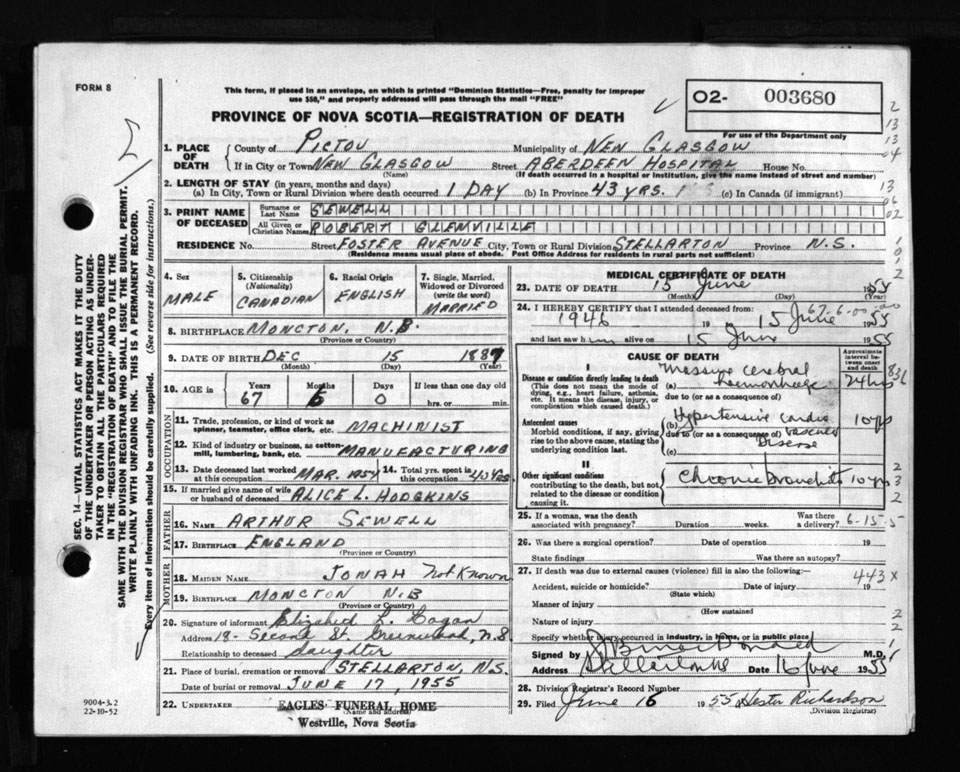 FORM 8
This form, if placed in an envelope, on which is printed "Dominion Statistics—Free, penalty for improper
use $50," and properly addressed will pass through the mail "FREE"
PROVINCE OF NOVA SCOTIA—REGISTRATION OF DEATH
O2- 003680
For use of the Department only
1. PLACE OF DEATH
County of PICTOU Municipality of NEW GLASGOW
If in City or Town NEW GLASGOW Street ABERDEEN HOSPITAL House No.
(Name) (If death occurred in a hospital or institution, give the name instead of street and number)
2. LENGTH OF STAY (in years, months and days)
(a) In City, Town or Rural Division where death occurred 1 DAY (b) In Province 43 YRS. (c) In Canada (if immigrant)
3. PRINT NAME OF DECEASED
Surname or Last Name SEWELL
All Given or Christian Names ROBERT GLENVILLE
RESIDENCE No. Street FOSTER AVENUE City, Town or Rural Division STELLARTON Province N.S.
(Residence means usual place of abode. Post Office Address for residents in rural parts not sufficient)
4. Sex
MALE
5. Citizenship
(Nationality)
CANADIAN
6. Racial Origin
ENGLISH
7. Single, Married,
Widowed or Divorced
(write the word)
MARRIED
8. BIRTHPLACE MONCTON, N.B.
(Province or Country)
9. DATE OF BIRTH DEC 15 1887
(Month) (Day) (Year)
10. AGE in
Years Months Days If less than one day old
67 6 0 hrs. or min.
OCCUPATION
11. Trade, profession, or kind of work as
spinner, teamster, office clerk, etc. MACHINIST
12. Kind of industry or business, as cotton-
mill, lumbering, bank, etc. MANUFACTURING
13. Date deceased last worked
at this occupation MAR. 1954
14. Total yrs. spent in
this occupation 40 YRS.
15. If married give name of wife
or husband of deceased ALICE L. HODGKINS
FATHER
16. NAME ARTHUR SEWELL
17. BIRTHPLACE ENGLAND
(Province or Country)
MOTHER
18. MAIDEN NAME JONAH Not Known
19. BIRTHPLACE MONCTON N.B
(Province or Country)
20. Signature of informant L.
Address 18- Second St. Greenwood, N.S
Relationship to deceased daughter
21. Place of burial, cremation or removal STELLARTON, N.S.
Date of burial or removal JUNE 17, 1955
22. UNDERTAKER EAGLES' FUNERAL HOME
(Name and address)
Westville, Nova Scotia
MEDICAL CERTIFICATE OF DEATH
23. DATE OF DEATH 15 June 1955
(Month) (Day) (Year)
24. I HEREBY CERTIFY that I attended deceased from: 67-6-00-00
1946 19 15 June 1955
and last saw him alive on 15 June 1955
CAUSE OF DEATH
Approximate interval between onset and death
I
Disease or condition directly leading to death
(This does not mean the mode of
dying, e.g., heart failure, asthenia,
etc. It means the disease, injury, or
complication which caused death.)
(a) Massive cerebral
hemorrhage 24 hrs
due to (or as a consequence of)
Antecedent causes
Morbid conditions, if any, giving
rise to the above cause, stating the
underlying condition last.
(b) Hypertensive cardio 10 yrs
due to (or as a consequence of) vascular
Disease
(c)
II
Other significant conditions
contributing to the death, but not
related to the disease or condition
causing it.
Chronic bronchitis 10 yrs
25. If a woman, was the death
associated with pregnancy? Duration weeks. Was there a delivery? 6-15-5
26. Was there a surgical operation? Date of operation 19
State findings Was there an autopsy?
27. If death was due to external causes (violence) fill in also the following:
443 X
Accident, suicide or homicide? Date of injury 19
(State which)
Manner of injury
(How sustained
Nature of injury
Specify whether injury occurred in industry, in home, or in public place
Signed by M.D.
Address Date 16 June 1955
28. Division Registrar's Record Number
29. Filed June 16 1955 Hester Richardson
(Division Registrar)
SEC. 14—VITAL STATISTICS ACT MAKES IT THE DUTY
OF THE UNDERTAKER OR PERSON ACTING AS UNDER-
TAKER TO OBTAIN ALL THE PARTICULARS REQUIRED
IN THE "REGISTRATION OF DEATH" AND TO FILE THE
SAME WITH THE DIVISION REGISTRAR WHO SHALL ISSUE THE BURIAL PERMIT.
WRITE PLAINLY WITH UNFADING INK. THIS IS A PERMANENT RECORD.
Every item of information should be carefully supplied. (See reverse side for instructions.)
9004-3.2
22-10-52